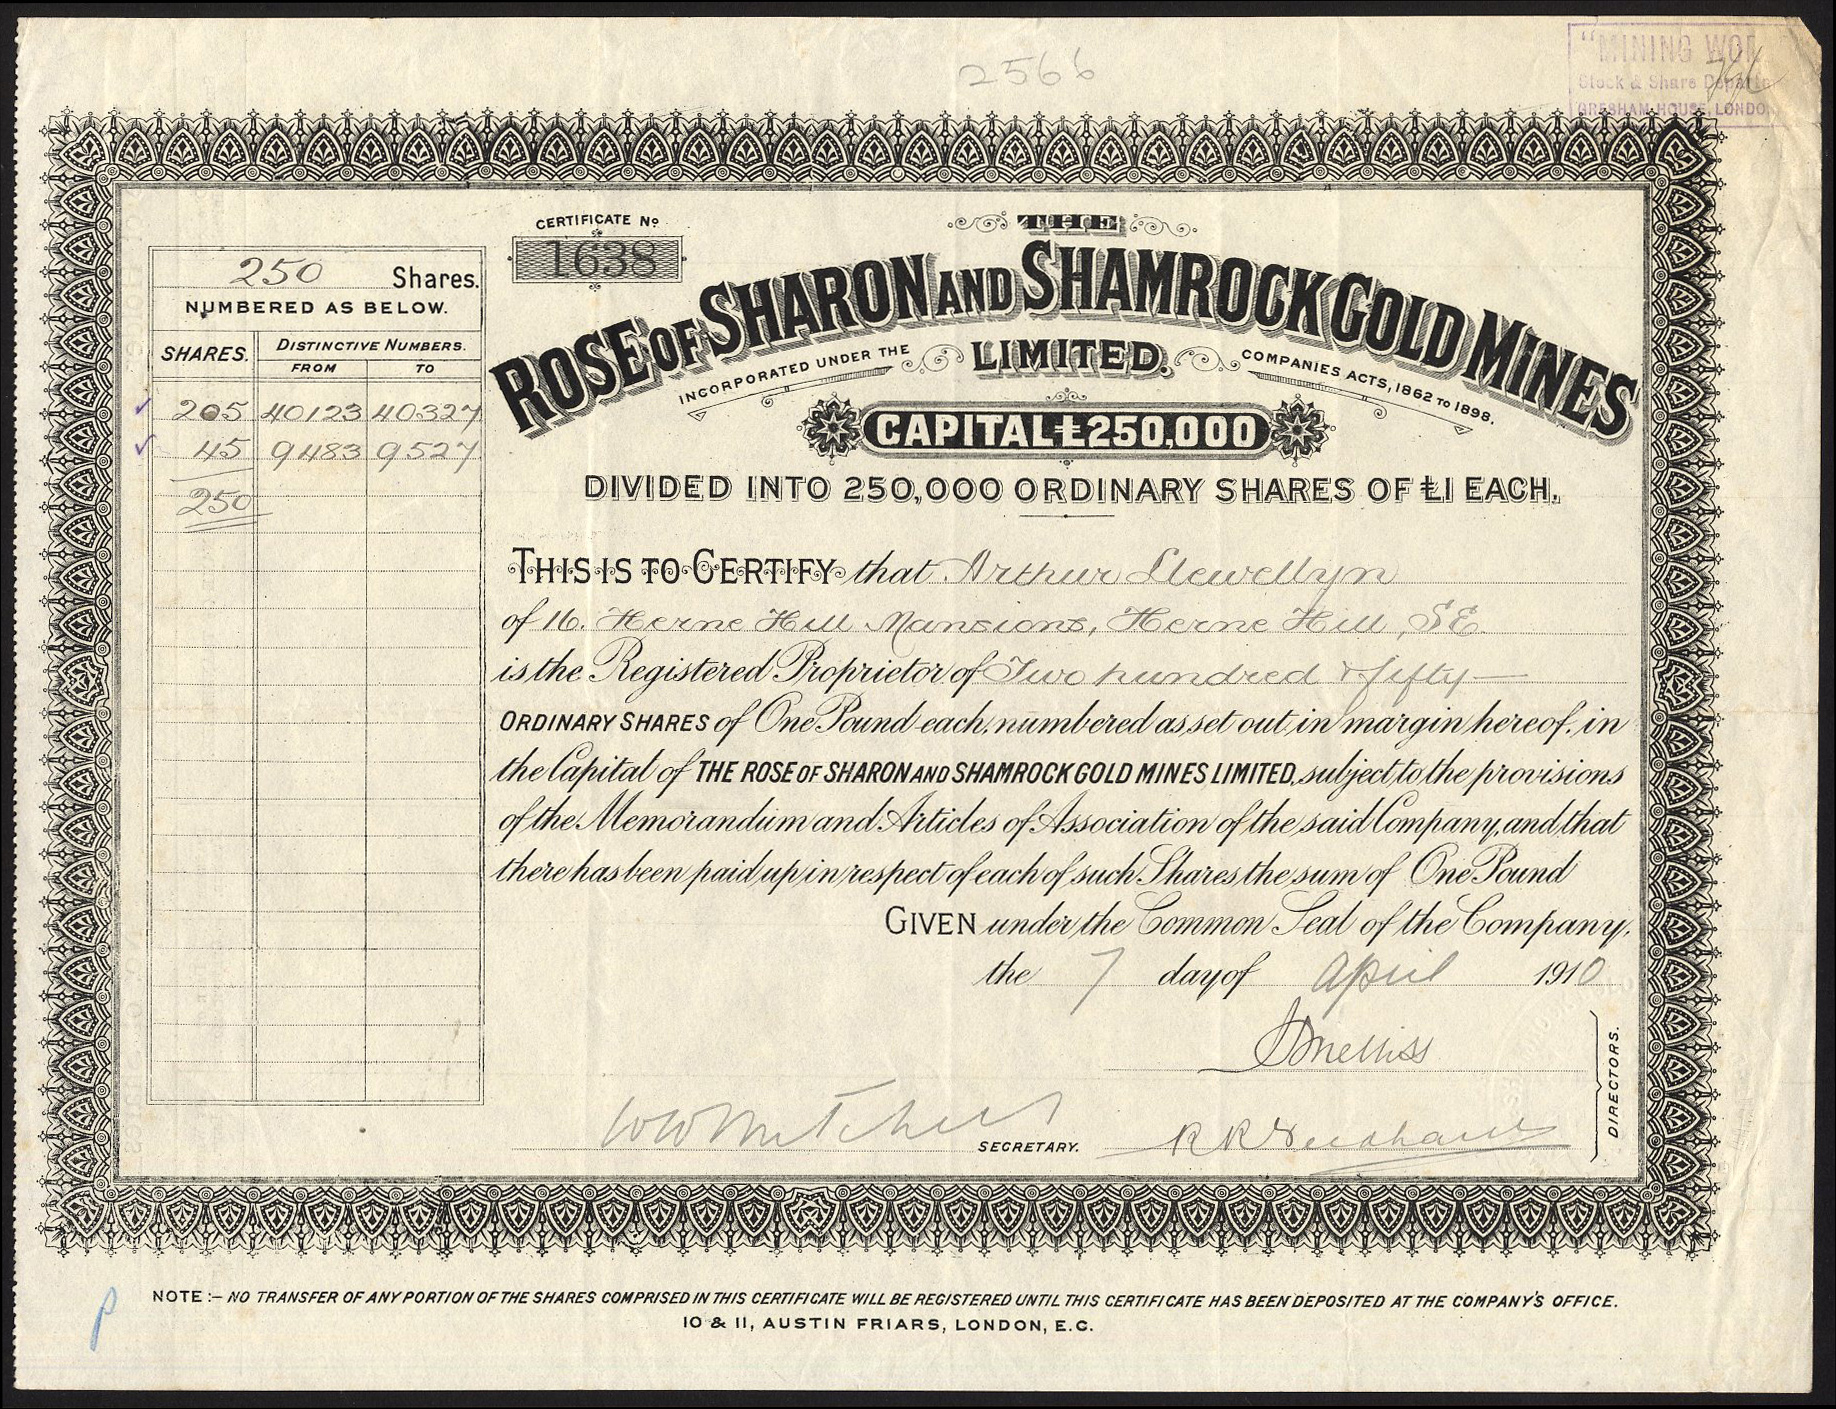 2566
"MINING WOR
Stock & Share Departm
GRESHAM HOUSE, LONDO
CERTIFICATE No.
1638
THE
ROSE OF SHARON AND SHAMROCK GOLD MINES
INCORPORATED UNDER THE
LIMITED.
COMPANIES ACTS, 1862 TO 1898.
CAPITAL £250,000
DIVIDED INTO 250,000 ORDINARY SHARES OF £1 EACH.
250 Shares.
NUMBERED AS BELOW.
SHARES. DISTINCTIVE NUMBERS.
FROM TO
205 40123 40327
45 9483 9527
250
THIS IS TO CERTIFY that Arthur Llewellyn
of 16. Herne Hill Mansions, Herne Hill, SE.
is the Registered Proprietor of Two hundred & fifty —
ORDINARY SHARES of One Pound each, numbered as set out in margin hereof, in
the Capital of THE ROSE OF SHARON AND SHAMROCK GOLD MINES LIMITED, subject to the provisions
of the Memorandum and Articles of Association of the said Company, and that
there has been paid up in respect of each of such Shares the sum of One Pound
GIVEN under the Common Seal of the Company,
the 7 day of April 1910
DIRECTORS.
SECRETARY.
NOTE :– NO TRANSFER OF ANY PORTION OF THE SHARES COMPRISED IN THIS CERTIFICATE WILL BE REGISTERED UNTIL THIS CERTIFICATE HAS BEEN DEPOSITED AT THE COMPANY'S OFFICE.
10 & 11, AUSTIN FRIARS, LONDON, E.C.